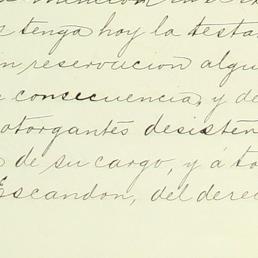 tenga hoy la testa
n reservucion algu
consecuencia, y de
otorgantes desisten
de su cargo, y á to
Escandon, del derec